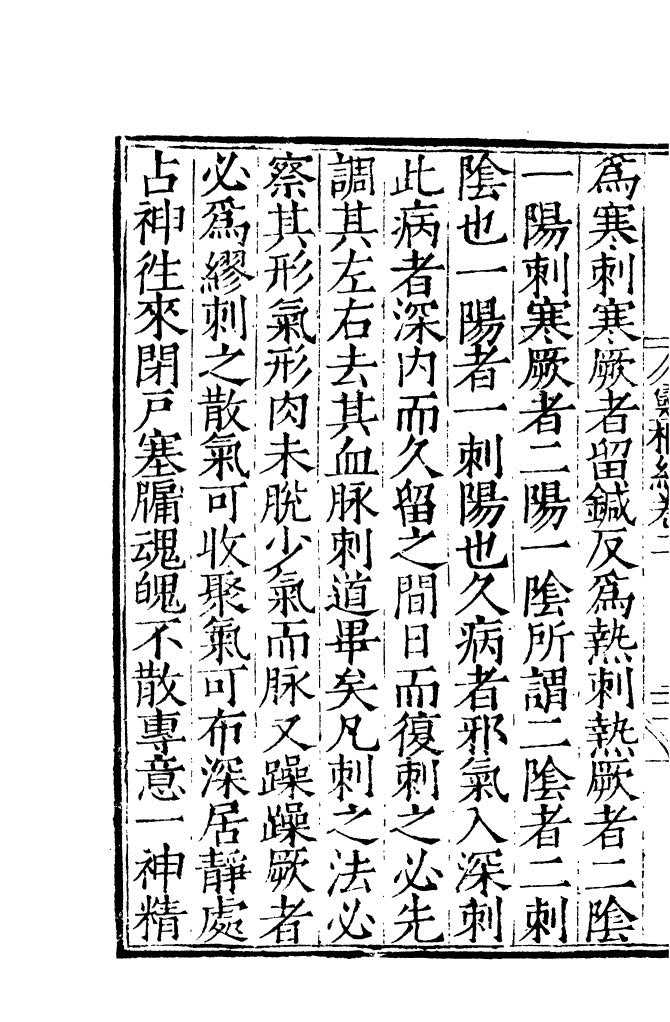 爲寒刺寒厥者留鍼反爲熱刺熱厥者二陰
一陽刺寒厥者二陽一陰所謂二陰者二刺
陰也一陽者一刺陽也久病者邪氣入深刺
此病者深内而久留之間日而復刺之必先
調其左右去其血脉刺道畢矣凡刺之法必
察其形氣形肉未脫少氣而脉又躁躁厥者
必爲繆刺之散氣可收聚氣可布深居靜處
占神徃來閉戸塞牖魂魄不散專意一神精